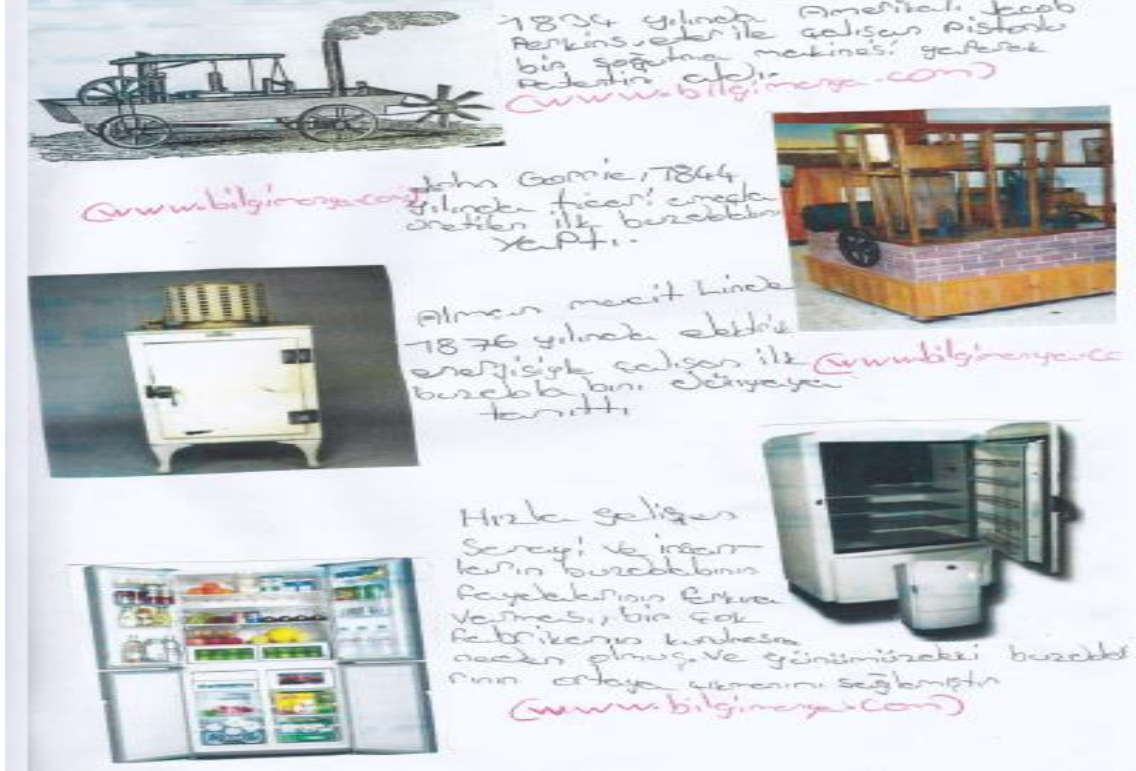 1834 yılında Amerikalı Jacob
Perkins, eter ile çalışan pistonlu
bir soğutma makinesi yaparak
patentini aldı.
(www.bilgimanya.com)
John Gorrie, 1844
yılında ticari amaçla
üretilen ilk buzdolabını
yaptı.
(www.bilgimanya.com)
Alman mucit Linde
1876 yılında elektrik
enerjisiyle çalışan ilk
buzdolabını dünyaya
tanıttı
(www.bilgimanya.co
Hızla gelişen
Sanayi ve insan-
ların buzdolabının
faydalarının farkına
varması, bir çok
fabrikanın kurulmasına
neden olmuş. Ve günümüzdeki buzdolabı
rının ortaya çıkmasını sağlamıştır
(www.bilgimanya.com)